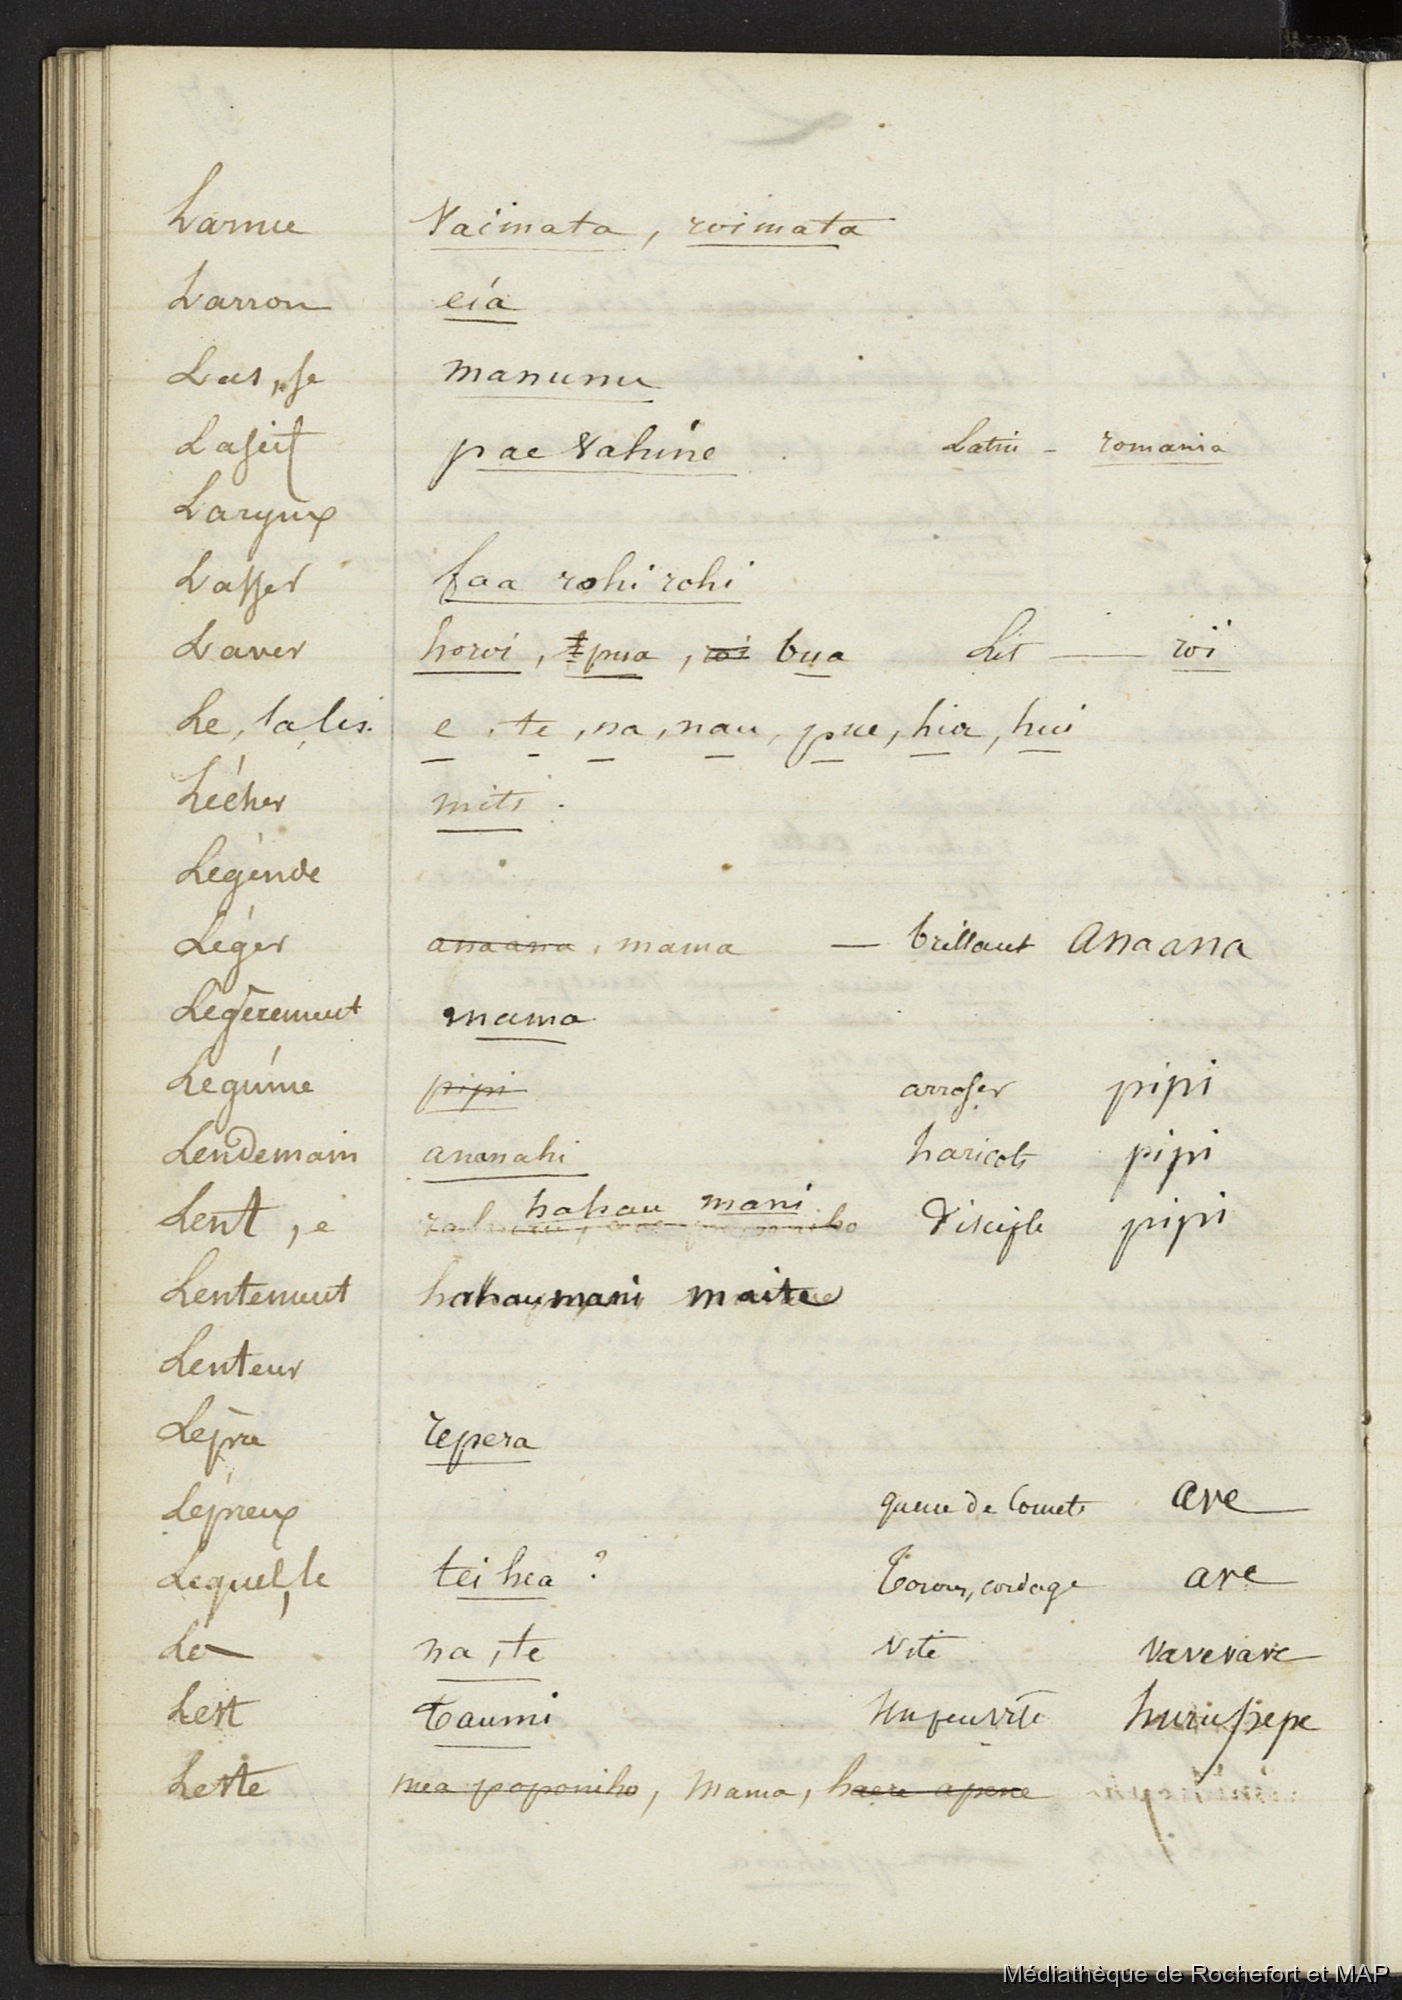 Larme Vaimata, roimata
Larron eia
Las, se manunu
Lascif pae vahine Latin - romania
Larynx
Lasser faa rohi rohi
Laver horoi, pua, roi bua Lit — roï
Le, la, les. e, te, na, nau, pue, hia, hui
Lécher miti.
Légende
Léger anaana, mama — brillant Anaana
Légèrement mama
Légume pipi arroser pipi
Lendemain ananahi haricots pipi
Lent, e hahau mani Disciple pipi
Lentement hahaumani maite
Lenteur
Lèpre repera
Lépreux queue de Comete ave
Lequel, le tei hea? Torons, cordage ave
Les na, te vite vavevave
Lest Taumi Un peu vite
Leste mea poponiho, mama, haere apene
Médiathèque de Rochefort et MAP